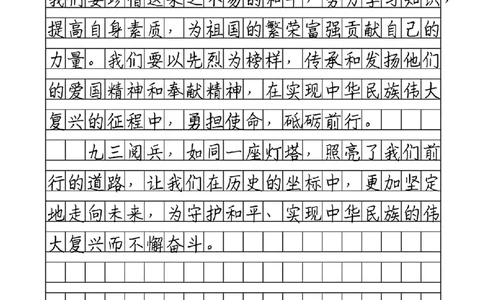 我们要珍惜这来之不易的和平，努力学习知识，
提高自身素质，为祖国的繁荣富强贡献自己的
力量。我们要以先烈为榜样，传承和发扬他们
的爱国精神和奉献精神，在实现中华民族伟大
复兴的征程中，勇担使命，砥砺前行。
九三阅兵，如同一座灯塔，照亮了我们前
行的道路，让我们在历史的坐标中，更加坚定
地走向未来，为守护和平、实现中华民族的伟
大复兴而不懈奋斗。